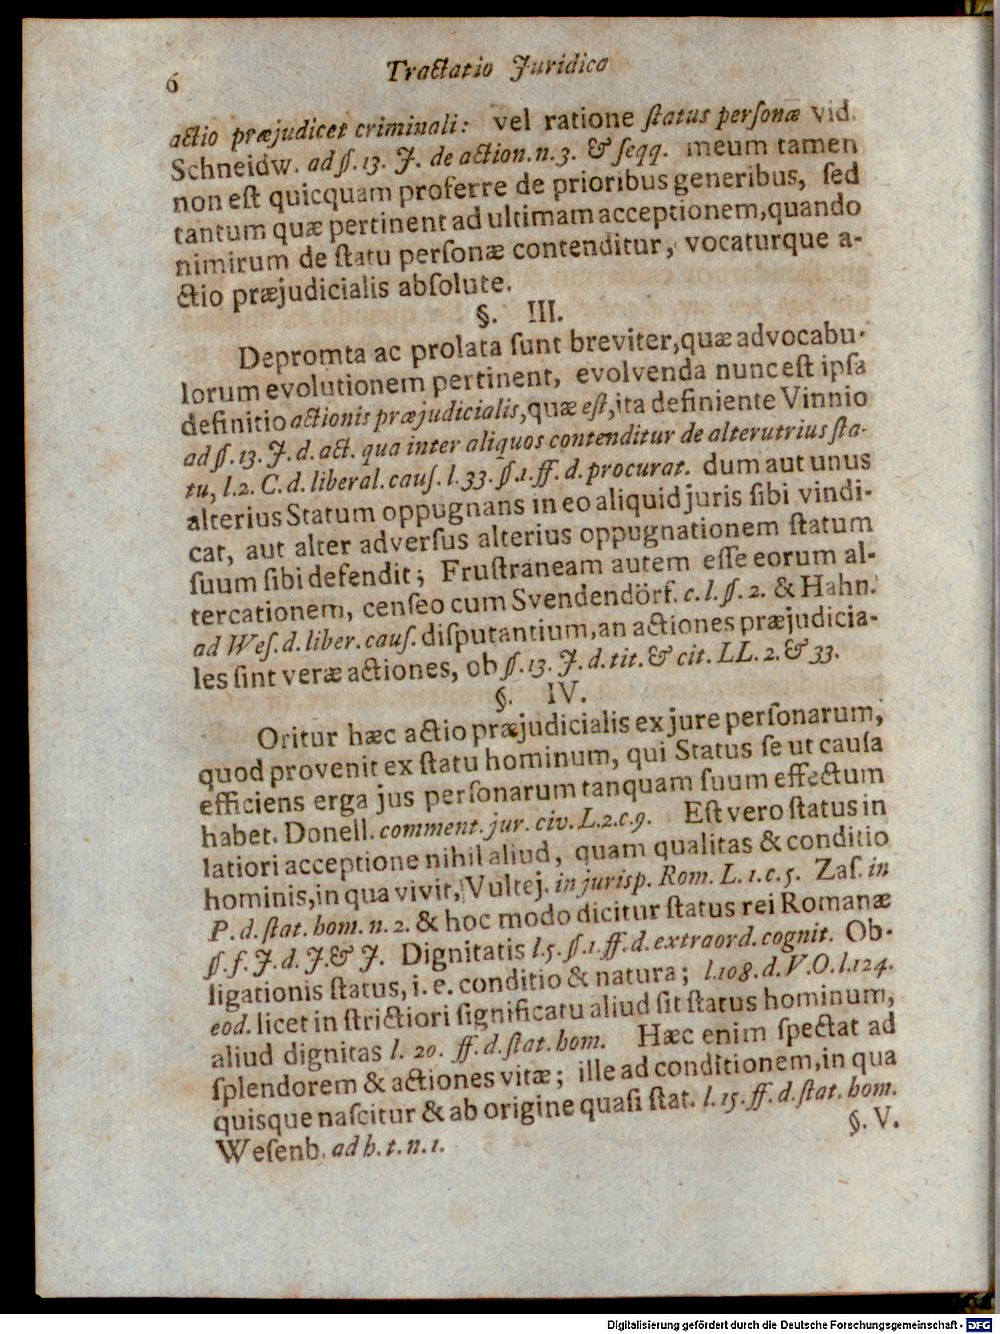 6
Tractatio Juridica
actio præjudicet criminali: vel ratione ſtatus perſonæ vid.
Schneidw. ad ſ. 13. J. de action. n. 3. & ſeqq. meum tamen
non eſt quicquam proferre de prioribus generibus, ſed
tantum quæ pertinent ad ultimam acceptionem, quando
nimirum de ſtatu perſonæ contenditur, vocaturque a-
ctio præjudicialis abſolute.
§. III.
Depromta ac prolata ſunt breviter, quæ ad vocabu-
lorum evolutionem pertinent, evolvenda nunc eſt ipſa
definitio actionis præjudicialis, quæ eſt, ita definiente Vinnio
ad ſ. 13. J. d. act. qua inter aliquos contenditur de alterutrius ſta-
tu, l. 2. C. d. liberal. cauſ. l. 33. ſ. 1. ff. d. procurat. dum aut unus
alterius Statum oppugnans in eo aliquid juris ſibi vindi-
cat, aut alter adverſus alterius oppugnationem ſtatum
ſuum ſibi defendit; Fruſtraneam autem eſſe eorum al-
tercationem, cenſeo cum Svendendörf. c. l. ſ. 2. & Hahn.
ad Weſ. d. liber. cauſ. diſputantium, an actiones præjudicia-
les ſint veræ actiones, ob ſ. 13. J. d. tit. & cit. LL. 2. & 33.
§. IV.
Oritur hæc actio præjudicialis ex jure perſonarum,
quod provenit ex ſtatu hominum, qui Status ſe ut cauſa
efficiens erga jus perſonarum tanquam ſuum effectum
habet. Donell. comment. jur. civ. L. 2. c. 9. Eſt vero ſtatus in
latiori acceptione nihil aliud, quam qualitas & conditio
hominis, in qua vivit, Vultej. in jurisp. Rom. L. 1. c. 5. Zaſ. in
P. d. ſtat. hom. n. 2. & hoc modo dicitur ſtatus rei Romanæ
ſ. f. J. d. J. & J. Dignitatis l. 5. ſ. 1. ff. d. extraord. cognit. Ob-
ligationis ſtatus, i. e. conditio & natura; l. 108. d. V. O. l. 124.
eod. licet in ſtrictiori ſignificatu aliud ſit ſtatus hominum,
aliud dignitas l. 20. ff. d. ſtat. hom. Hæc enim ſpectat ad
ſplendorem & actiones vitæ; ille ad conditionem, in qua
quisque naſcitur & ab origine quaſi ſtat. l. 15. ff. d. ſtat. hom.
Weſenb. ad h. t. n. 1.
§. V.
Digitalisierung gefördert durch die Deutsche Forschungsgemeinschaft - DFG